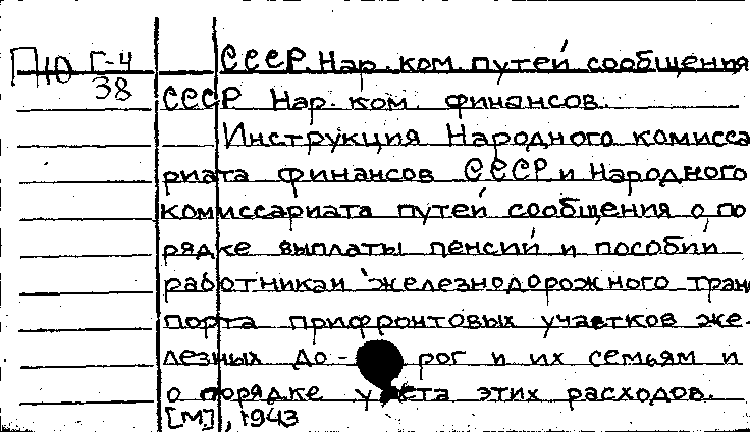 ПЮ Г-4
38
СССР. Нар. ком. путей сообщения
СССР Нар. ком. финансов.
Инструкция Народного комисса
риата финансов СССР и Народного
комиссариата путей сообщения о по
рядке выплаты пенсий и пособий
работникам железнодорожного транс
порта прифронтовых участков же-
лезных до- рог и их семьям и
о порядке учета этих расходов.
[М], 1943